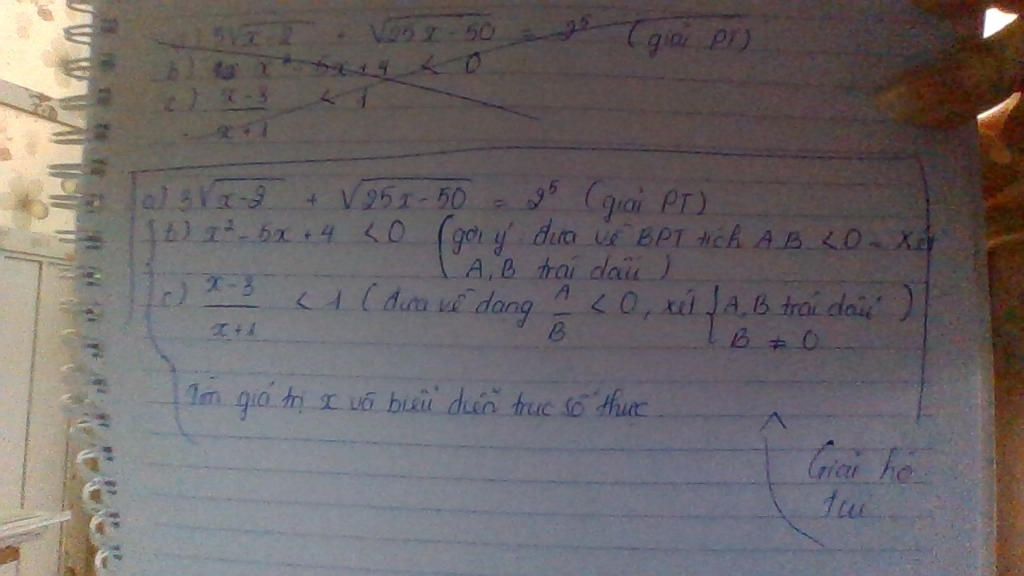 a) 3√x-2 + √25x-50 = 2⁵ (giải PT)
b) x² - 5x + 4 < 0
c) x-3 < 1
x+1
a) 3√x-2 + √25x-50 = 2⁵ (giải PT)
b) x² - 5x + 4 < 0 (gợi ý đưa về BPT tích A.B < 0 - Xét
A, B trái dấu)
c) x-3 / x+1 < 1 (đưa về dạng A/B < 0, xét { A, B trái dấu )
B ≠ 0
Tìm giá trị x và biểu diễn trục số thực
Giải hộ
tui